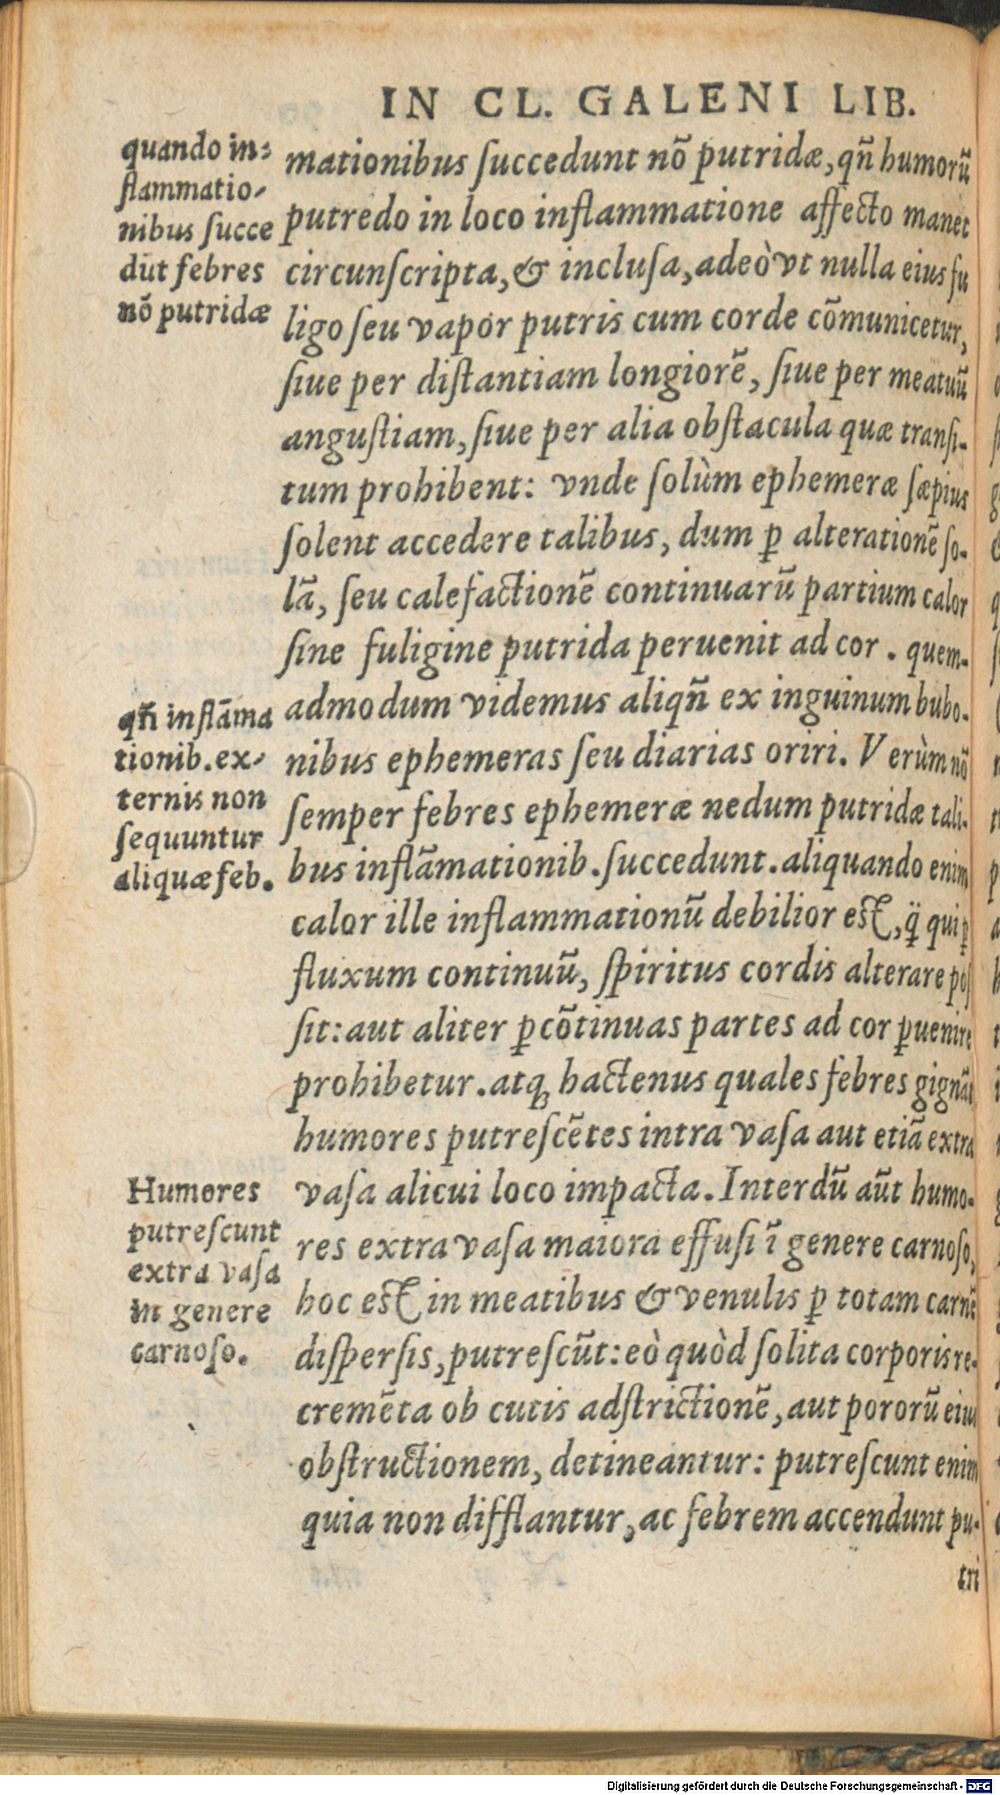 IN CL. GALENI LIB.
quando in-
flammatio-
nibus succe
dūt febres
nō putridæ
mationibus succedunt nō putridæ, qñ humorū
putredo in loco inflammatione affecto manet
circunscripta, & inclusa, adeò vt nulla eius fu
ligo seu vapor putris cum corde cōmunicetur,
siue per distantiam longiorē, siue per meatuū
angustiam, siue per alia obstacula quæ transi-
tum prohibent: vnde solùm ephemeræ sæpius
solent accedere talibus, dum ꝑ alterationē so-
lā, seu calefactionē continuarū partium calor
sine fuligine putrida peruenit ad cor. quem-
admodum videmus aliqñ ex inguinum bubo-
nibus ephemeras seu diarias oriri. Verùm nō
semper febres ephemeræ nedum putridæ tali-
bus inflāmationib. succedunt. aliquando enim
calor ille inflammationū debilior est, q̄ qui ꝑ
fluxum continuū, spiritus cordis alterare pos
sit: aut aliter ꝑ cōtinuas partes ad cor ꝑuenire
prohibetur. atq; hactenus quales febres gignāt
humores putrescētes intra vasa aut etiā extra
vasa alicui loco impacta. Interdū aūt humo-
res extra vasa maiora effusi ī genere carnoso,
hoc est in meatibus & venulis ꝑ totam carnē
dispersis, putrescūt: eò quòd solita corporis re-
cremēta ob cutis adstrictionē, aut pororū eius
obstructionem, detineantur: putrescunt enim
quia non difflantur, ac febrem accendunt pu-
tri
qñ inflāma
tionib. ex-
ternis non
sequuntur
aliquæ feb.
Humores
putrescunt
extra vasa
in genere
carnoso.
Digitalisierung gefördert durch die Deutsche Forschungsgemeinschaft - DFG